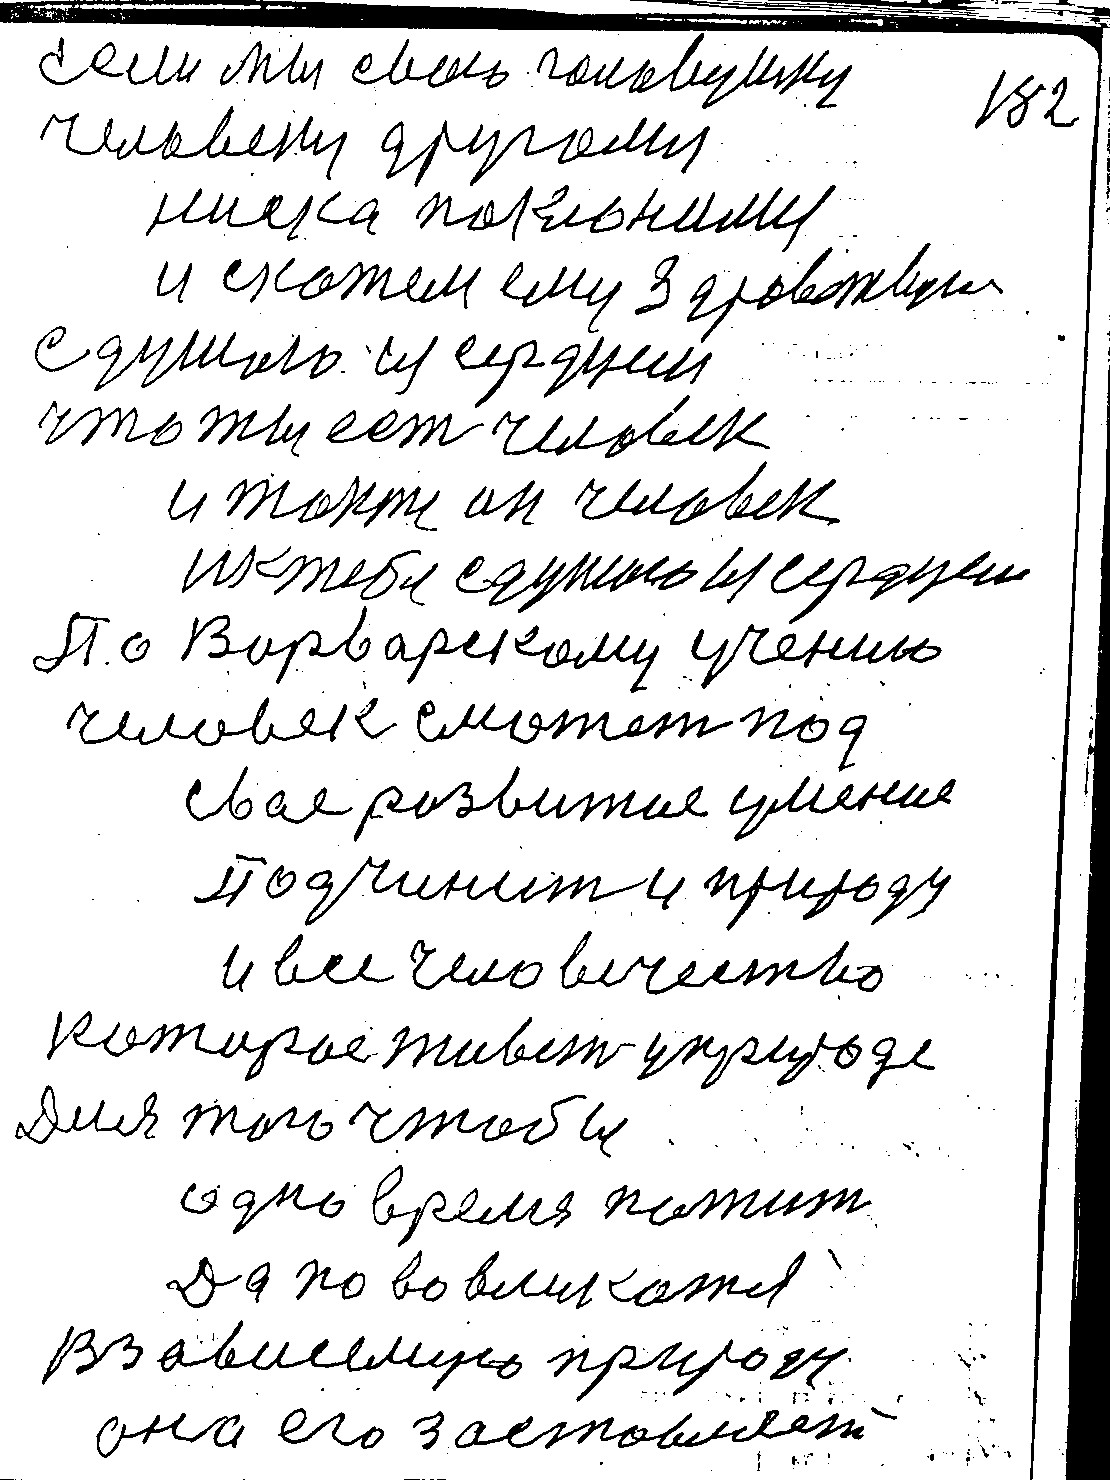 если мы свою головушку
182
человеку другому
ниска поклонимы
и скажем ему Здравствуй
с душою и сердцем
что ты ест человек
и такжи он человек
и к тебе с душою и сердцем
По Варварскому учению
человек сможет под
свае розвитие умение
Подчинит и природу
и все человичество
которое живет у природе
Для того чтобы
одно время пожит
В зависемую природу
она его заставляет